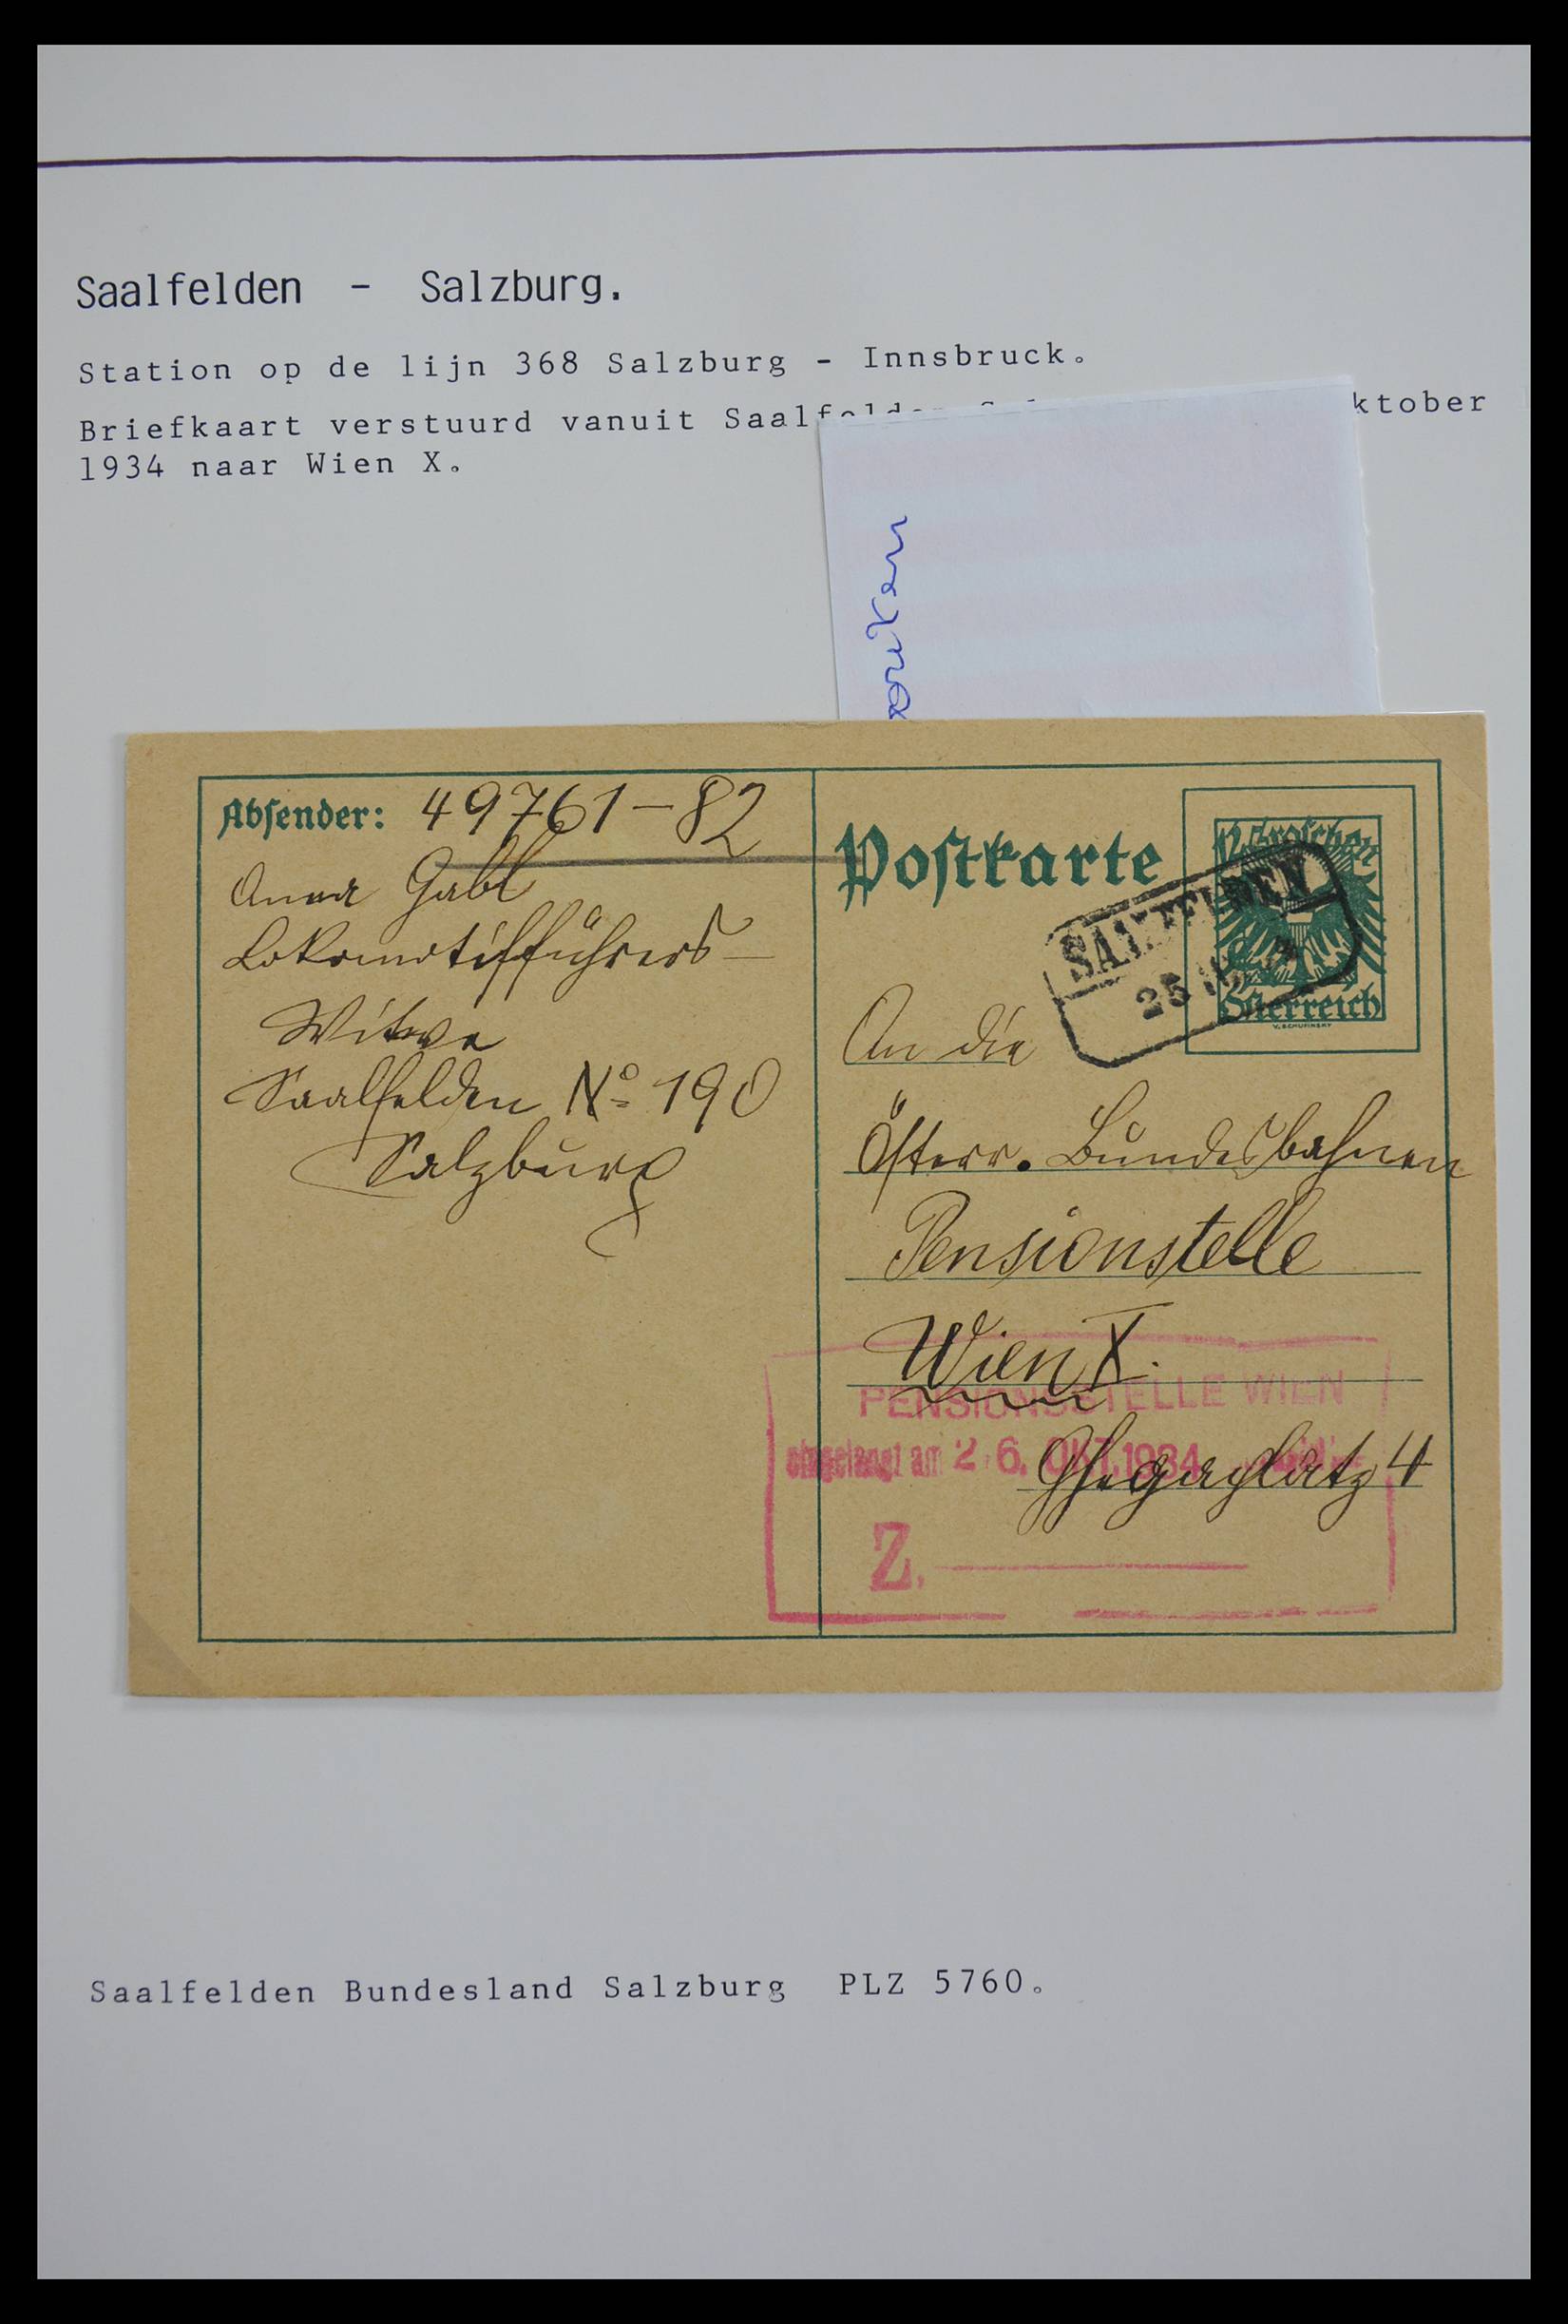 Saalfelden - Salzburg.
Station op de lijn 368 Salzburg - Innsbruck.
Briefkaart verstuurd vanuit ktober
1934 naar Wien X.
Absender: 49761-82
Anna Gabl
Lokomotifführers-
Witwe
Saalfelden No 190
Salzburg
Postkarte
12 Groschen
Österreich
SAALFELDEN
An die
Österr. Bundesbahnen
Pensionstelle
Wien X.
Ghegaplatz 4
PENSIONSSTELLE WIEN
eingelangt am 26. OKT. 1934
Z.
Saalfelden Bundesland Salzburg PLZ 5760.